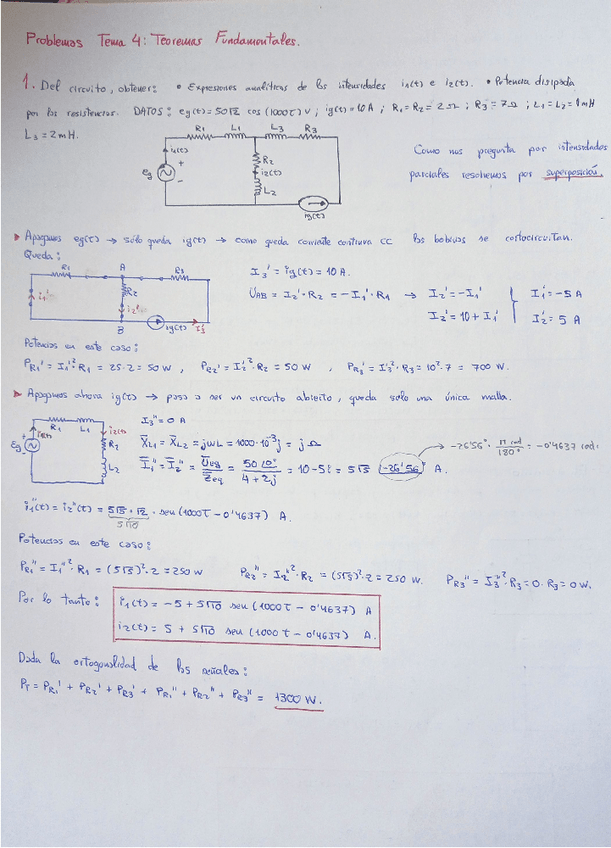 Problemas Tema 4: Teoremas Fundamentales.
1. Del circuito, obtener: • Expresiones analíticas de las intensidades i₁(t) e i₂(t). • Potencia disipada
por las resistencias. DATOS: eg(t)=50√2 cos(1000t) V; ig(t)=10 A; R₁=R₂=2Ω; R₃=7Ω; L₁=L₂=1mH
L₃=2mH.
R₁ L₁ L₃ R₃
i₁(t) R₂
eg + - i₂(t)
L₂
ig(t)
Como nos pregunta por intensidades
parciales resolvemos por superposición.
▶ Apagamos eg(t) → sólo queda ig(t) → como queda corriente continua CC las bobinas se cortocircuitan.
Queda:
R₁ A R₃
R₂
i₁' i₂'
B ig(t) I₃'
I₃' = ig(t) = 10 A.
UAB = I₂'·R₂ = -I₁'·R₁ → I₂' = -I₁' I₁' = -5 A
I₂' = 10 + I₁' I₂' = 5 A
Potencias en este caso:
PR₁' = I₁'²·R₁ = 25·2 = 50 W, PR₂' = I₂'²·R₂ = 50 W, PR₃' = I₃'²·R₃ = 10²·7 = 700 W.
▶ Apagamos ahora ig(t) → pasa a ser un circuito abierto, queda solo una única malla.
R₁ L₁ i₂(t)
i₁(t) R₂
eg L₂
I₃'' = 0 A
X̄L₁ = X̄L₂ = jωL = 1000·10⁻³j = j Ω
Ī₁'' = Ī₂'' = Ūeg/Z̄eq = 50∠0°/4+2j = 10-5i = 5√5 ∠-26'56° A.
→ -26'56° · π rad/180° = -0'4637 rad.
i₁''(t) = i₂''(t) = 5√5·√2 · sen(1000t - 0'4637) A.
5√10
Potencias en este caso:
PR₁'' = I₁''²·R₁ = (5√5)²·2 = 250 W PR₂'' = I₂''²·R₂ = (5√5)²·2 = 250 W. PR₃'' = I₃''²·R₃ = 0·R₃ = 0 W.
Por lo tanto: i₁(t) = -5 + 5√10 sen(1000t - 0'4637) A
i₂(t) = 5 + 5√10 sen(1000t - 0'4637) A.
Dada la ortogonalidad de las señales:
PT = PR₁' + PR₂' + PR₃' + PR₁'' + PR₂'' + PR₃'' = 1300 W.